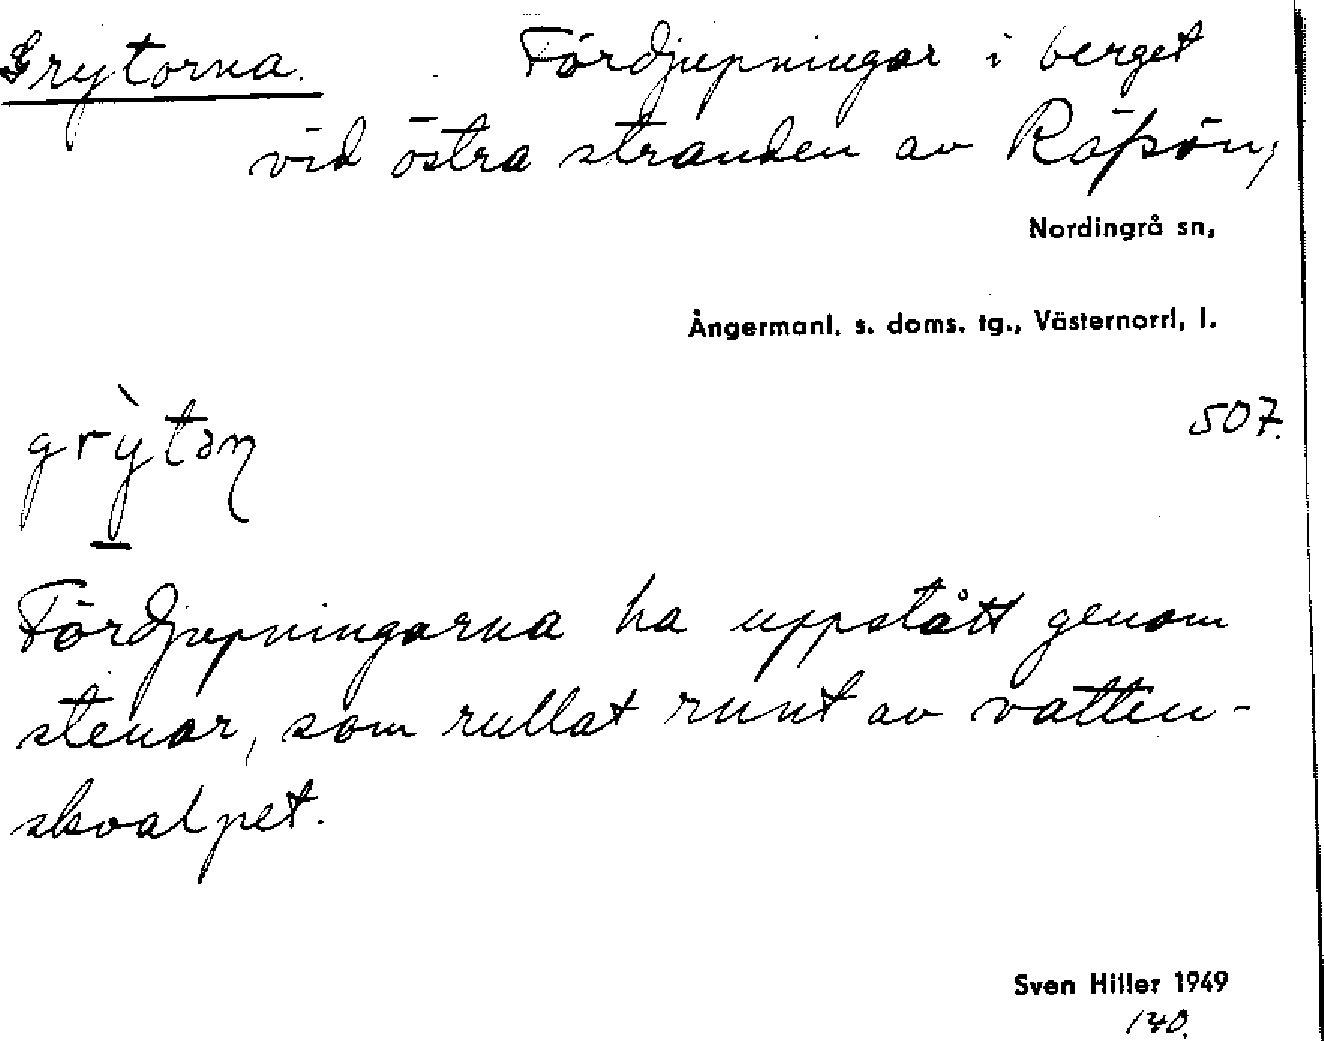 Grytorna. Fördjupningar i berget
vid östra stranden av Räpsön,
Nordingrå sn,
Ångermanl. s. doms. tg., Västernorrl. l.
507.
grỳtən
Fördjupningarna ha uppstått genom
stenar, som rullat runt av vatten-
skvalpet.
Sven Hiller 1949
140.